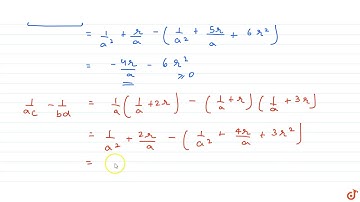 = 1/a² + r/a - (1/a² + 5r/a + 6r²)
= -4r/a - 6r² ≥0
1/ac - 1/bd = 1/a (1/a + 2r) - (1/a + r) (1/a + 3r)
= 1/a² + 2r/a - (1/a² + 4r/a + 3r²)
=